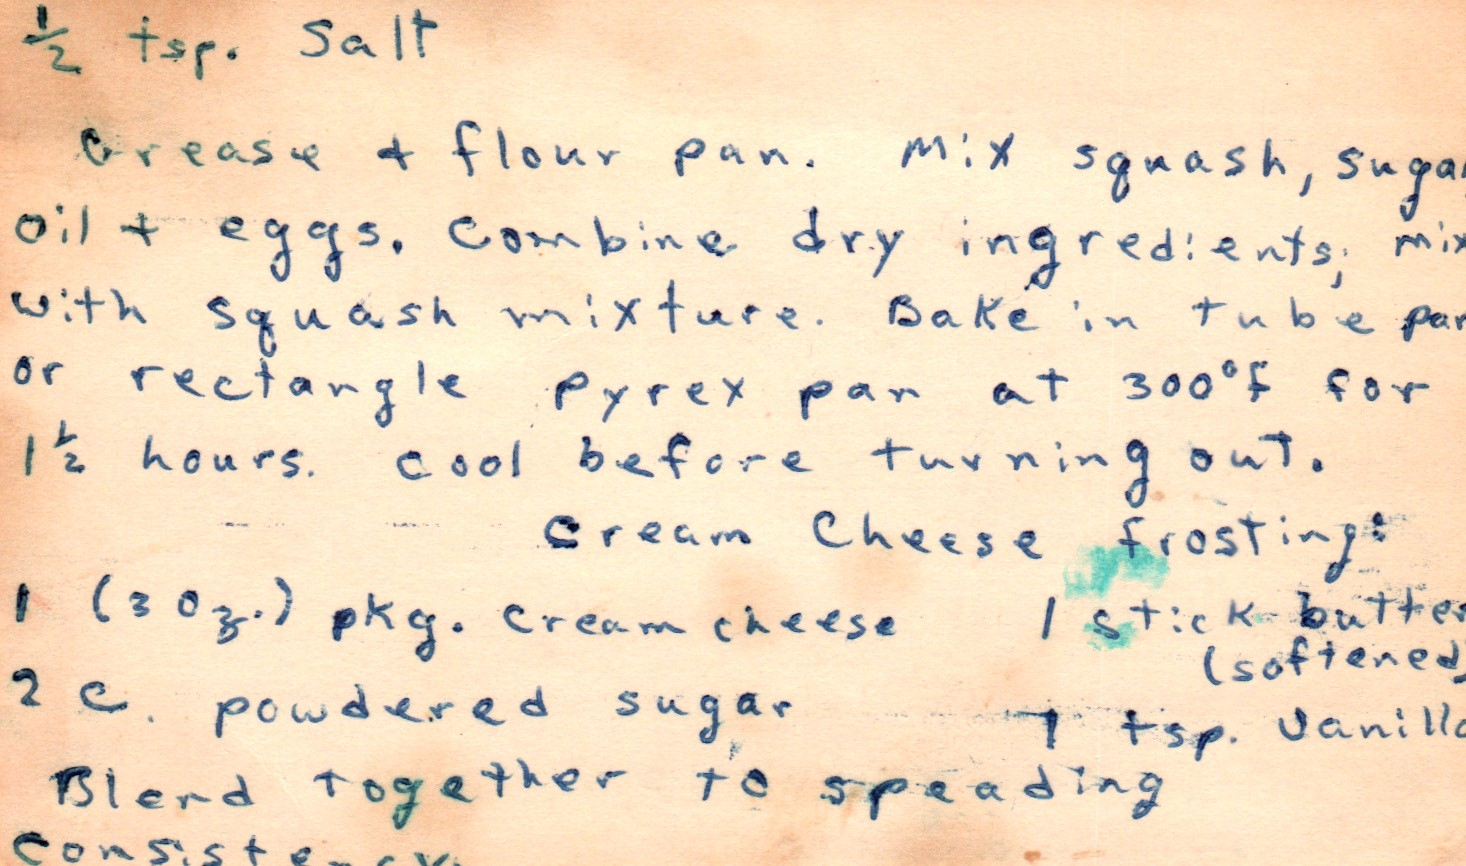 ½ tsp. Salt
Grease & flour pan. Mix squash, sugar
oil + eggs. Combine dry ingredients; mix
with squash mixture. Bake in tube pan
or rectangle pyrex pan at 300°F for
1½ hours. Cool before turning out.
Cream Cheese frosting:
1 (3 oz.) pkg. cream cheese 1 stick butter
(softened)
2 C. powdered sugar 1 tsp. Vanilla
Blend together to speading
consistency.